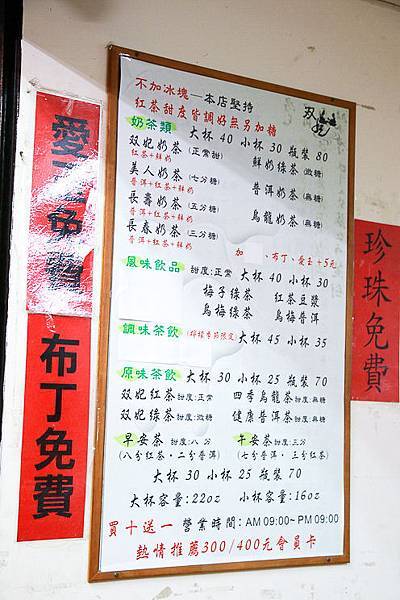 不加冰塊—本店堅持
紅茶甜度皆調好無另加糖
双妃
奶茶類 大杯 40 小杯 30 瓶裝 80
双妃奶茶 (正常甜) 鮮奶綠茶 (微糖)
紅茶+鮮奶
美人奶茶 (七分糖) 普洱奶茶 (無糖)
普洱+紅茶+鮮奶
長壽奶茶 (五分糖) 烏龍奶茶 (無糖)
普洱+紅茶+鮮奶
長春奶茶 (三分糖)
普洱+紅茶+鮮奶
加 、布丁、愛玉+5元
風味飲品 甜度:正常 大杯 40 小杯 30
梅子綠茶 紅茶豆漿
烏梅綠茶 烏梅普洱
調味茶飲 (檸檬季節限定) 大杯 45 小杯 35
原味茶飲 大杯 30 小杯 25 瓶裝 70
双妃紅茶 甜度:正常 四季烏龍茶 甜度:無糖
双妃綠茶 甜度:微糖 健康普洱茶 甜度:無糖
早安茶 甜度:八分 午安茶 甜度:三分
(八分紅茶・二分普洱) (七分普洱・三分紅茶)
大杯 30 小杯 25 瓶裝 70
大杯容量:22oz 小杯容量:16oz
買十送一 營業時間:AM 09:00~PM 09:00
熱情推薦300/400元會員卡
愛玉免費
布丁免費
珍珠免費